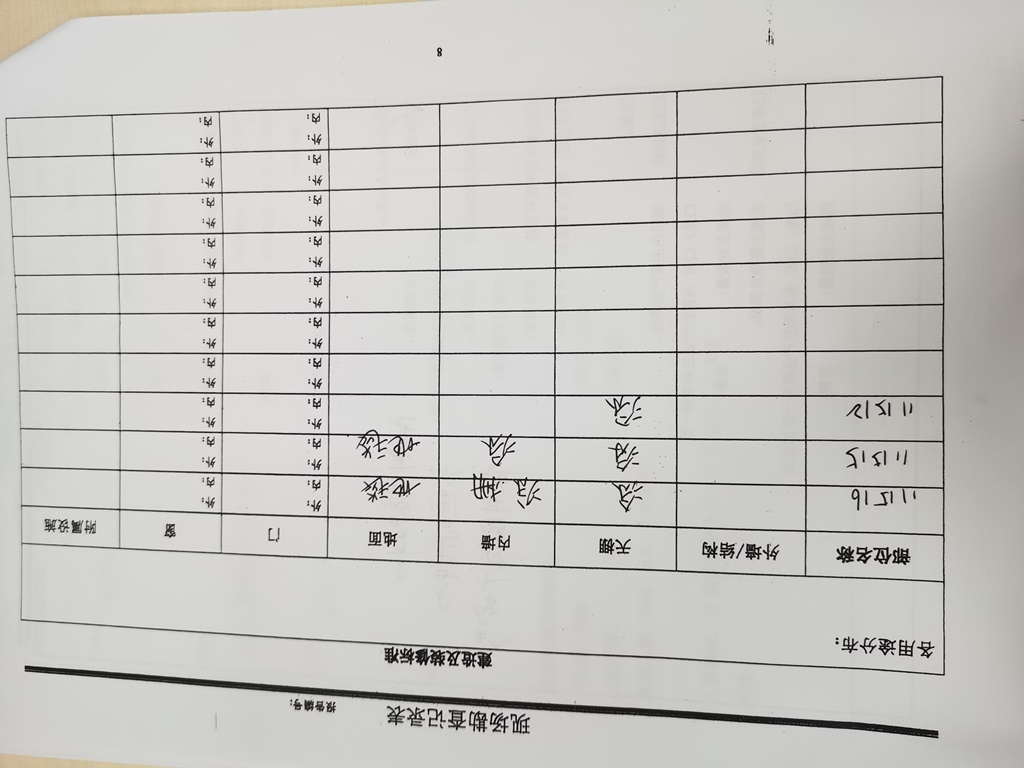 现场勘查记录表 报告编号:
建造及装修标准
各用途分布:
部位名称 外墙/结构 天棚 内墙 地面 门 窗 附属设施
涂 涂 地毯 外: 外:
内: 内:
涂 涂 地毯 外: 外:
内: 内:
涂 外: 外:
内: 内:
外: 外:
内: 内:
外: 外:
内: 内:
外: 外:
内: 内:
外: 外:
内: 内:
外: 外:
内: 内:
外: 外:
内: 内:
外: 外:
内: 内:
8